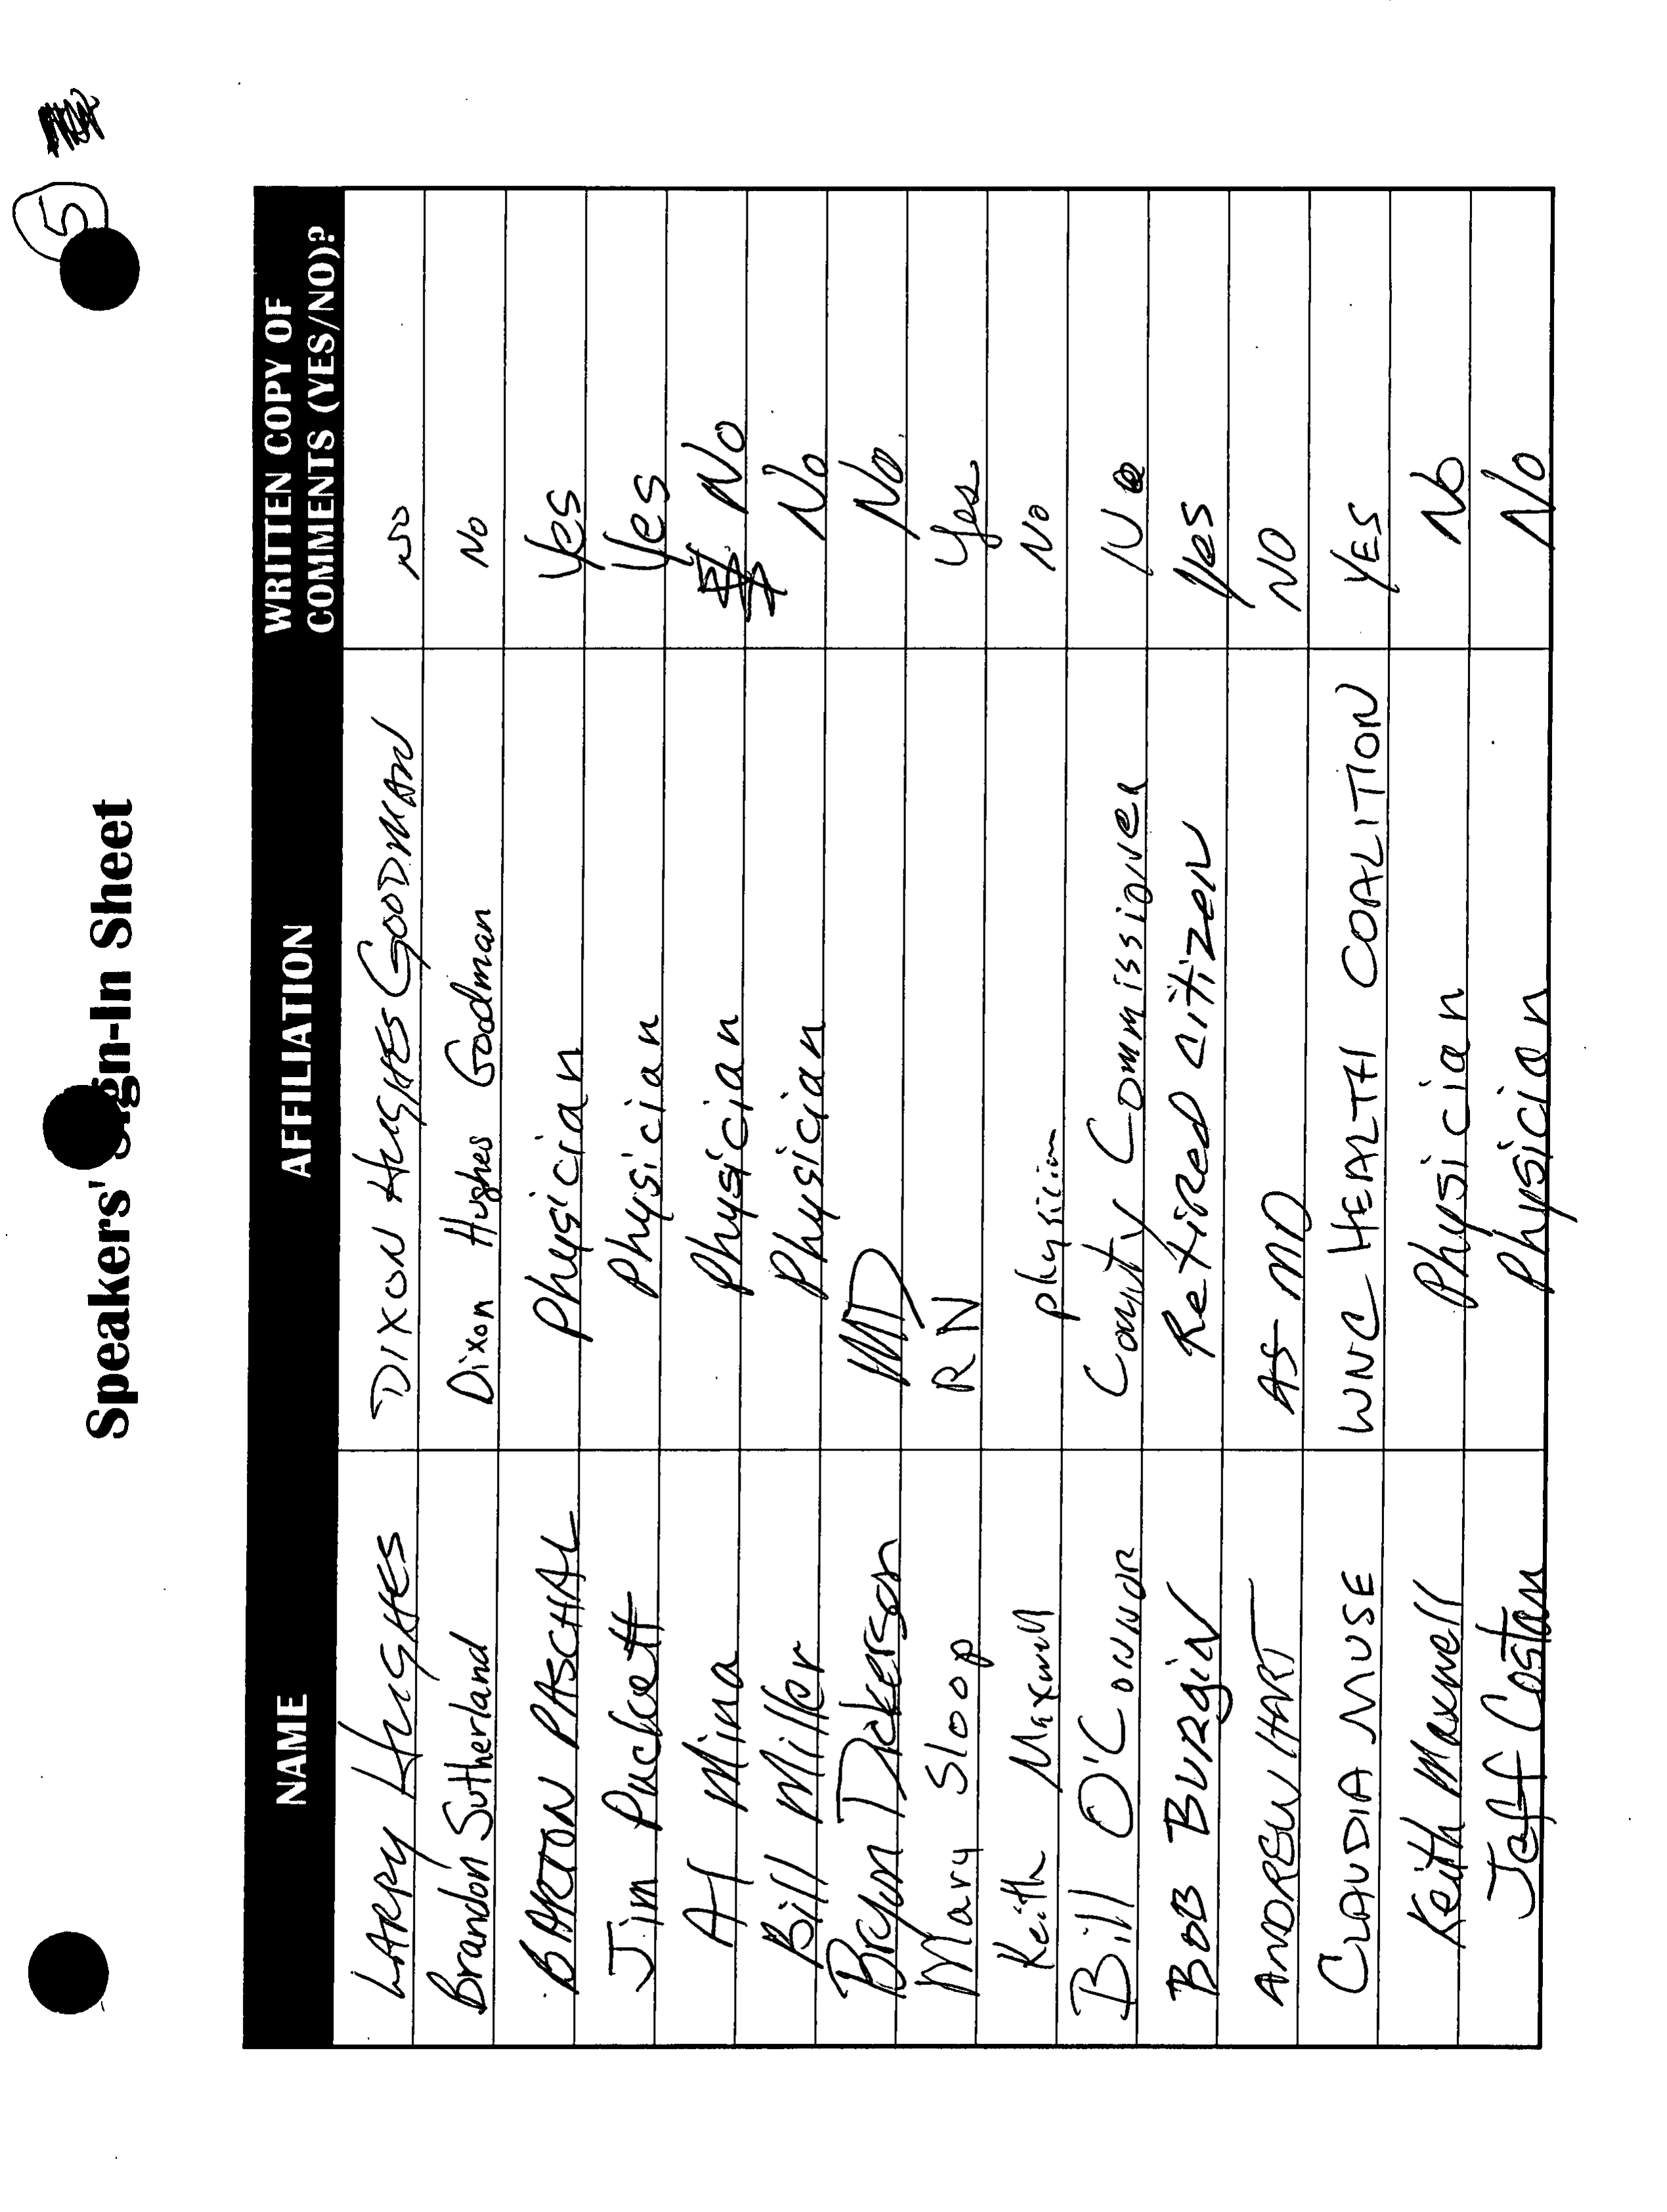 5
Speakers' Sign-In Sheet
NAME AFFILIATION WRITTEN COPY OF
COMMENTS (YES/NO)?
LARRY HUGHES DIXON HUGHES GOODMAN NO
Brandon Sutherland Dixon Hughes Goodman No
BARTON PASCHAL Physician Yes
Jim Puckett Physician Yes
Al Mina Physician No
Bill Miller Physician No
Bryon Dickerson MD No
Mary Sloop RN Yes
Keith Maxwell physician No
Bill O'Connor County Commissioner No
BOB BURgiN RetiRed citizeN Yes
ANDREW HART MD NO
CLAUDIA MUSE WNC HEALTH COALITION YES
Keith Maxwell Physician No
Jeff Costan Physician No